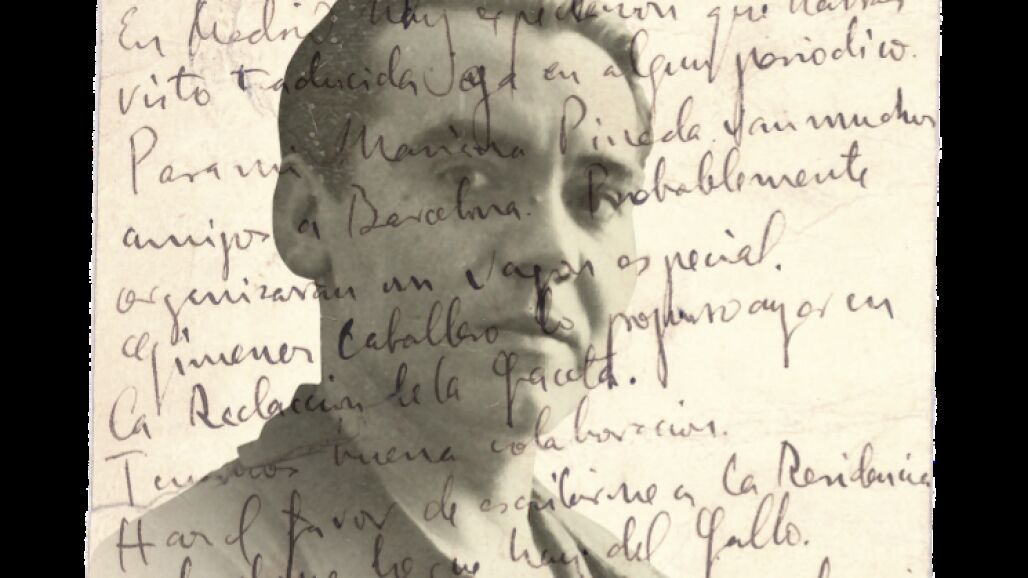 En Madrid hay expectacion que habras
visto traducida ya en algun periodico.
Para mi Mariana Pineda van muchos
amigos a Barcelona. Probablemente
organizaran un vagon especial.
Gimenez Caballero lo propuso ayer en
la Redaccion de la Gaceta.
Tenemos buena colaboracion.
Haz el favor de escribirme a la Residencia
que hay del Gallo.